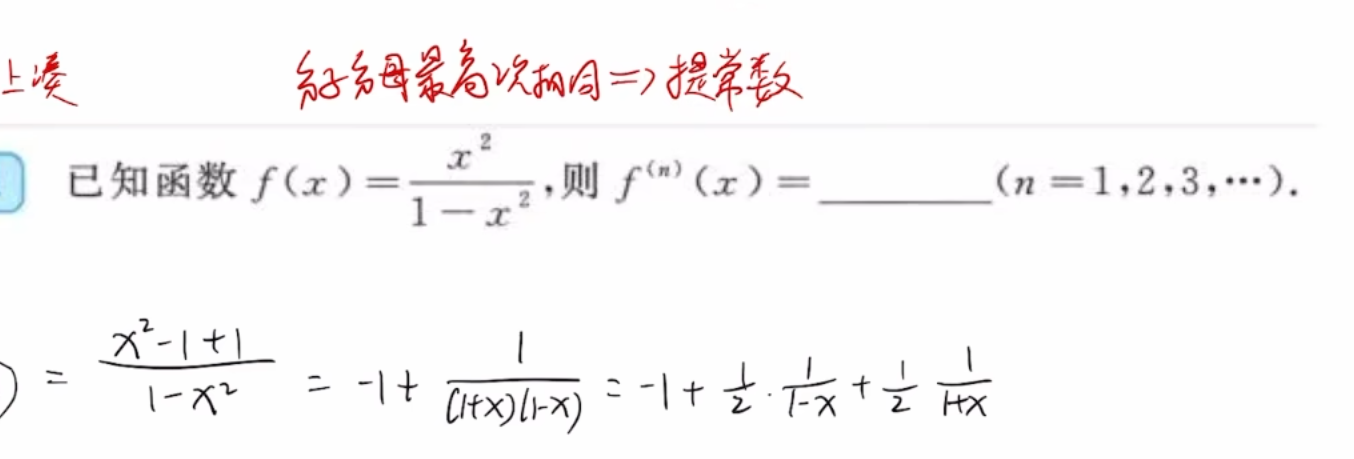 上凑 分子分母最高次相同=>提常数
已知函数 f(x)=\frac{x^2}{1-x^2},则 f^{(n)}(x)=________(n=1,2,3,…).
) = \frac{x^2-1+1}{1-x^2} = -1+\frac{1}{(1+x)(1-x)} = -1+\frac{1}{2}·\frac{1}{1-x}+\frac{1}{2}\frac{1}{1+x}